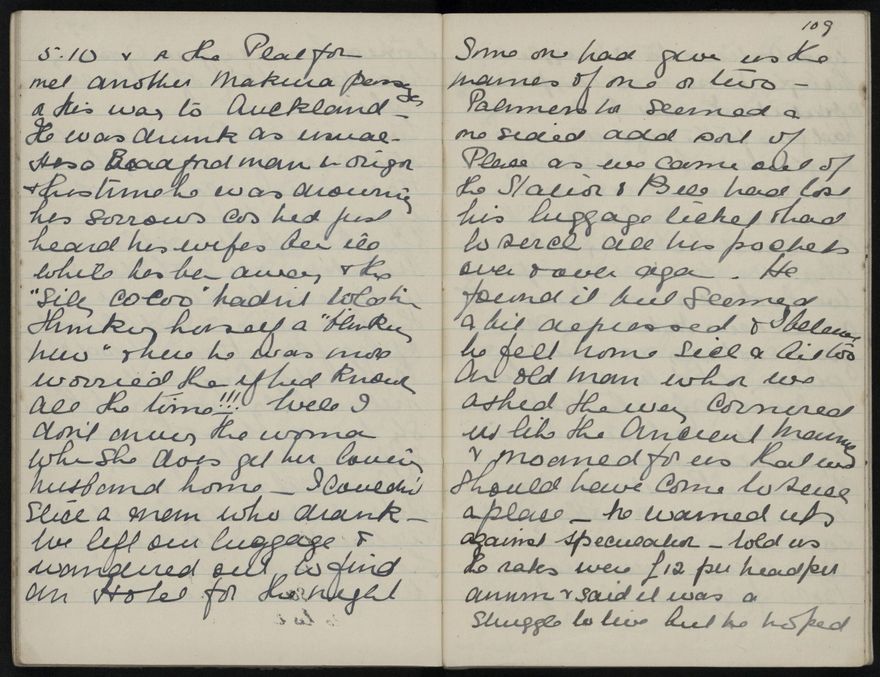 5.10 & on the Platfor
met another Makura passenger
on his way to Auckland –
He was drunk as usual –
Hes a Bradford man in origin
& this time he was drowning
his sorrows cos hed just
heard his wifes ben ill
while hes ben away & the
"silly cocoo" hadnt told him
thinking herself a "
" & here he was more
worried than if hed known
all the time!!! Well I
don't envy the woman
when she does get her loving
husband home – I couldn't
stick a man who drank –
We left our luggage &
wandered out to find
an Hotel for the night
109
Some one had given us the
names of one or two –
Palmerston seemed a
one sided odd sort of
Place as we came out of
the Station & Bill had lost
his luggage ticket & had
to serch all his pockets
over & over again. He
found it but seemed
a bit depressed & I believe
he felt home sick a bit too
An old man whom we
asked the way cornered
us like the Ancient Mariner
& moaned for us that we
should have come to such
a place – he warned us
against speculation – told us
the rates were £12 per head per
annum & said it was a
struggle to live but he hoped